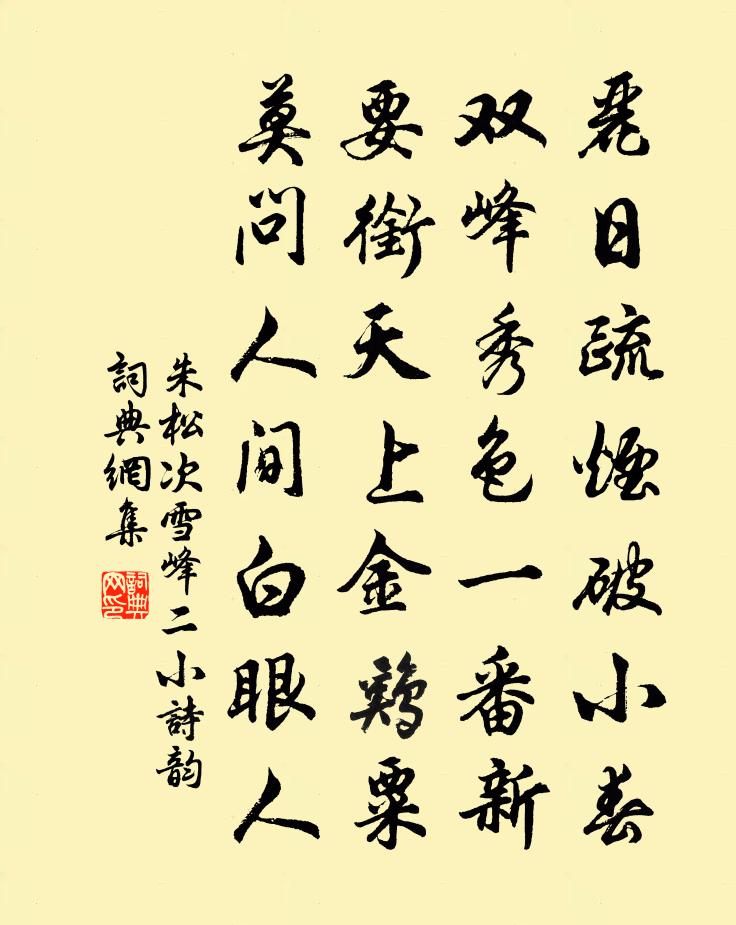 麗日疏煙破小春
双峰秀色一番新
要銜天上金鷄粟
莫問人间白眼人
朱松次雪峰二小詩韵
詞典網集
詞典网印